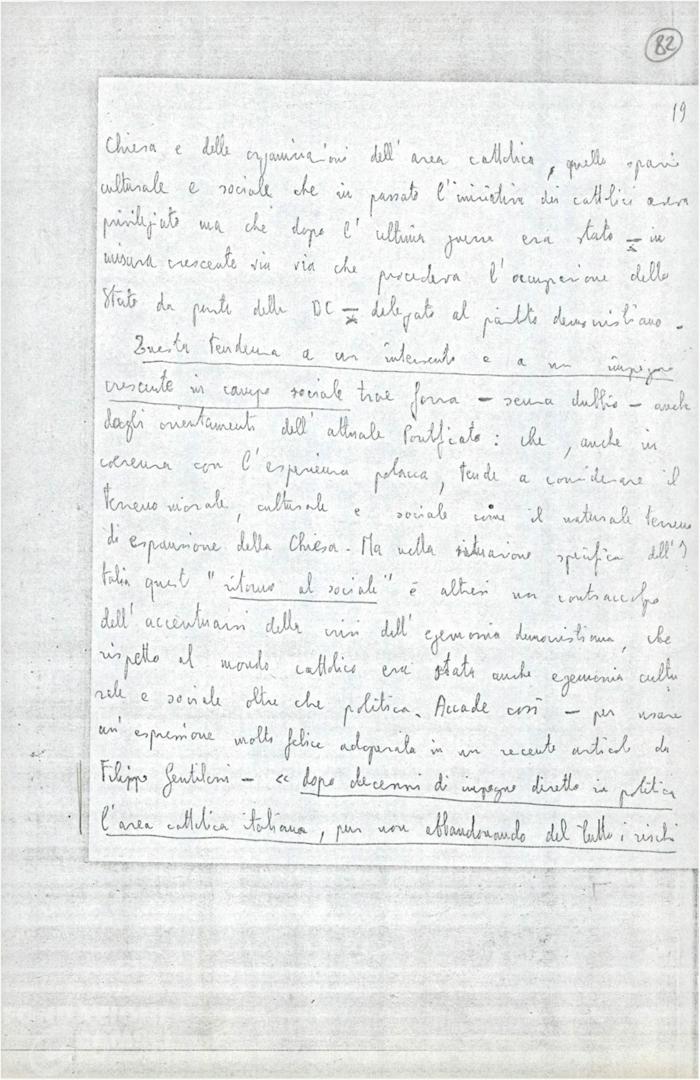 B2
19
Chiesa e delle organizzazioni dell'area cattolica, quello spazio
culturale e sociale che in passato l'iniziativa dei cattolici aveva
privilegiato ma che dopo l'ultima guerra era stato – in
misura crescente via via che procedeva l'occupazione dello
Stato da parte della DC – delegato al partito democristiano.
Questa tendenza a un intervento e a un impegno
crescente in campo sociale trae forza – senza dubbio – anche
dagli orientamenti dell'attuale Pontificato: che, anche in
coerenza con l'esperienza polacca, tende a considerare il
terreno morale, culturale e sociale come il naturale terreno
di espansione della Chiesa. Ma nella situazione specifica dell'I
talia quest'"ritorno al sociale" è altresì un contraccolpo
dell'accentuarsi della crisi dell'egemonia democristiana, che
rispetto al mondo cattolico era stata anche egemonia cultu
rale e sociale oltre che politica. Accade così – per usare
un'espressione molto felice adoperata in un recente articolo di
Filippo Gentiloni – « dopo decenni di impegno diretto in politica
l'area cattolica italiana, pur non abbandonando del tutto i rischi